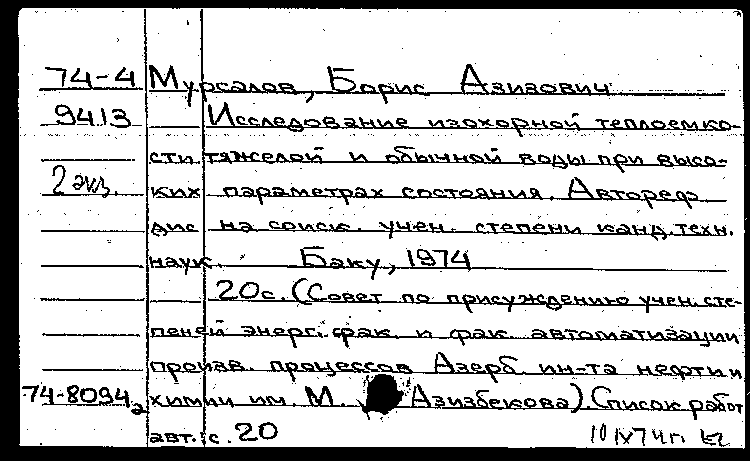 74-4 Мурсалов, Борис Азизович
9413 Исследование изохорной теплоемко-
сти тяжелой и обычной воды при высо-
2 экз. ких параметрах состояния. Автореф.
дис на соиск. учен. степени канд. техн.
наук. Баку, 1974
20с. (Совет по присуждению учен. сте-
пеней энерг. фак. и фак. автоматизации
произв. процессов Азерб. ин-та нефти и
74-8094а химии им. М. Азизбекова). Список работ
авт.: с. 20 10 IV 74 г.